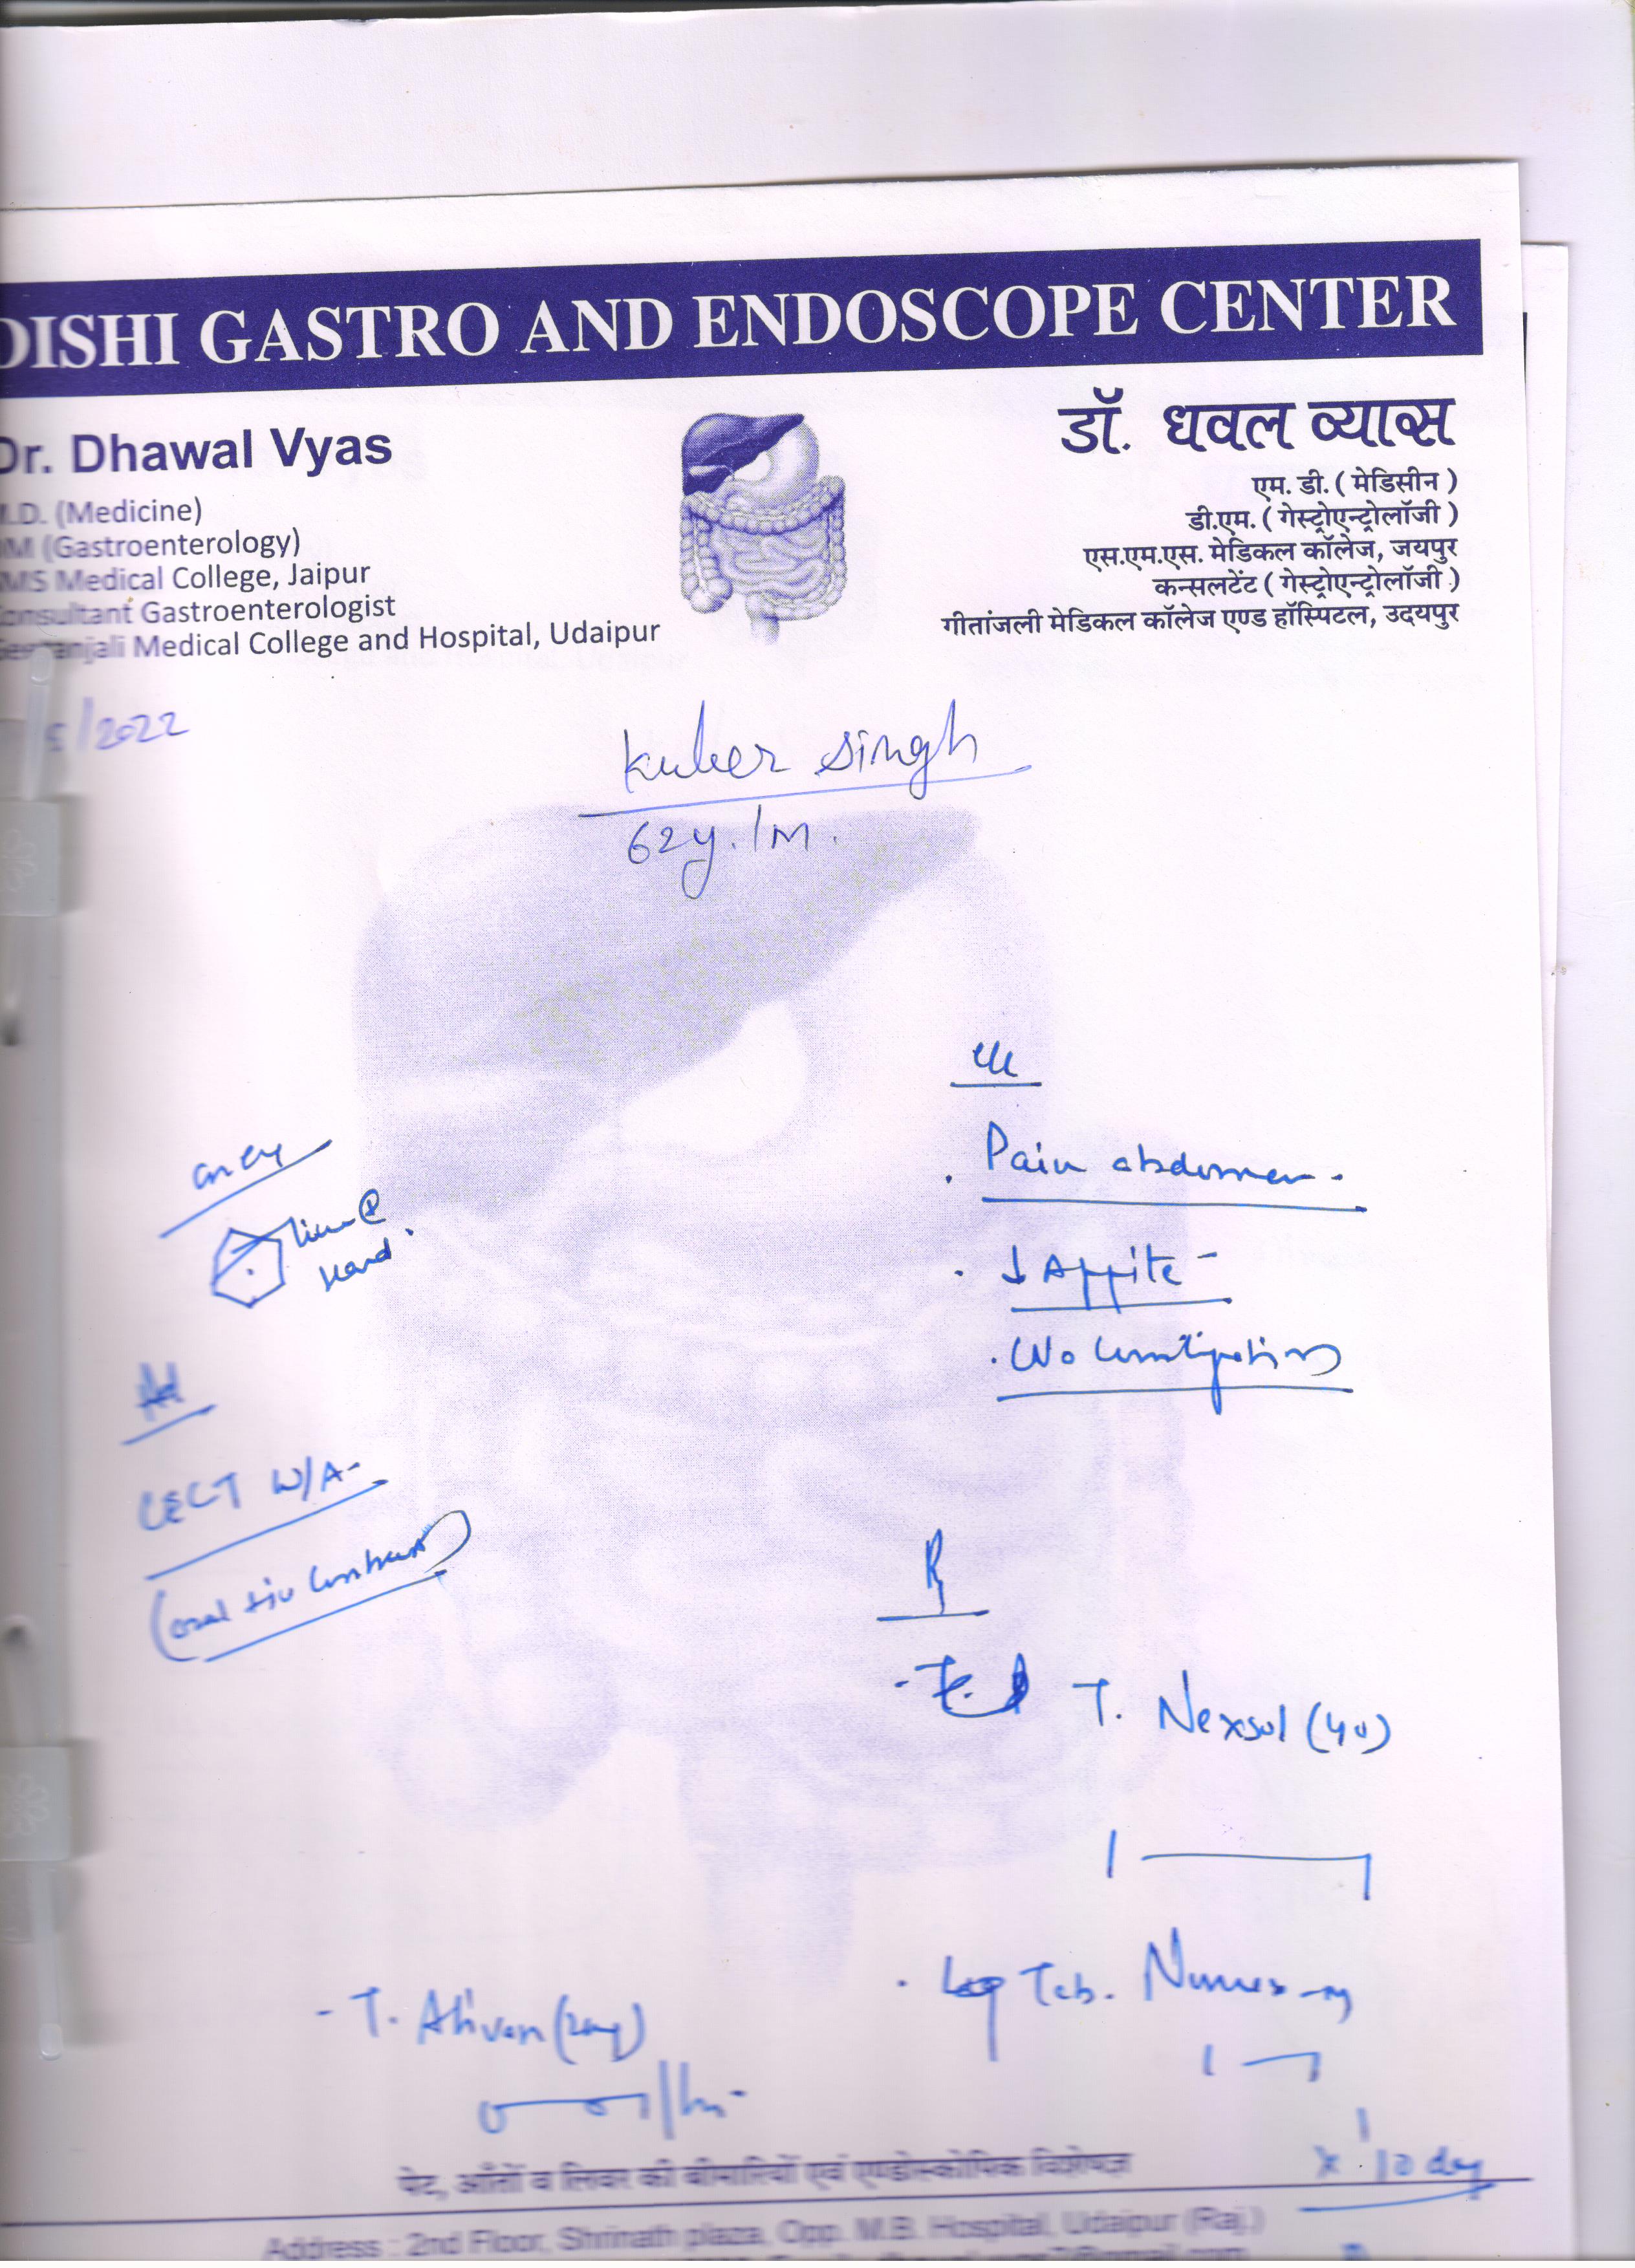 DISHI GASTRO AND ENDOSCOPE CENTER
Dr. Dhawal Vyas
.D. (Medicine)
DM (Gastroenterology)
SMS Medical College, Jaipur
Consultant Gastroenterologist
Geetanjali Medical College and Hospital, Udaipur
डॉ. धवल व्यास
एम. डी. ( मेडिसीन )
डी.एम. ( गेस्ट्रोएन्ट्रोलॉजी )
एस.एम.एस. मेडिकल कॉलेज, जयपुर
कन्सलटेंट ( गेस्ट्रोएन्ट्रोलॉजी )
गीतांजली मेडिकल कॉलेज एण्ड हॉस्पिटल, उदयपुर
/2022
Kuber Singh
62y. / M.
Pain abdomen.
↓ Appite
Constipation
hard.
CECT W/A
(oral + iv Contrast)
T. Nexsol (40)
1 — 1
Tab.
1 — 1
- T. Ativan (2mg)
x 10 day
पेट, आँतों व लिवर की बीमारियों एवं एण्डोस्कोपिक विशेषज्ञ
Address : 2nd Floor, Shrinath plaza, Opp. M.B. Hospital, Udaipur (Raj.)